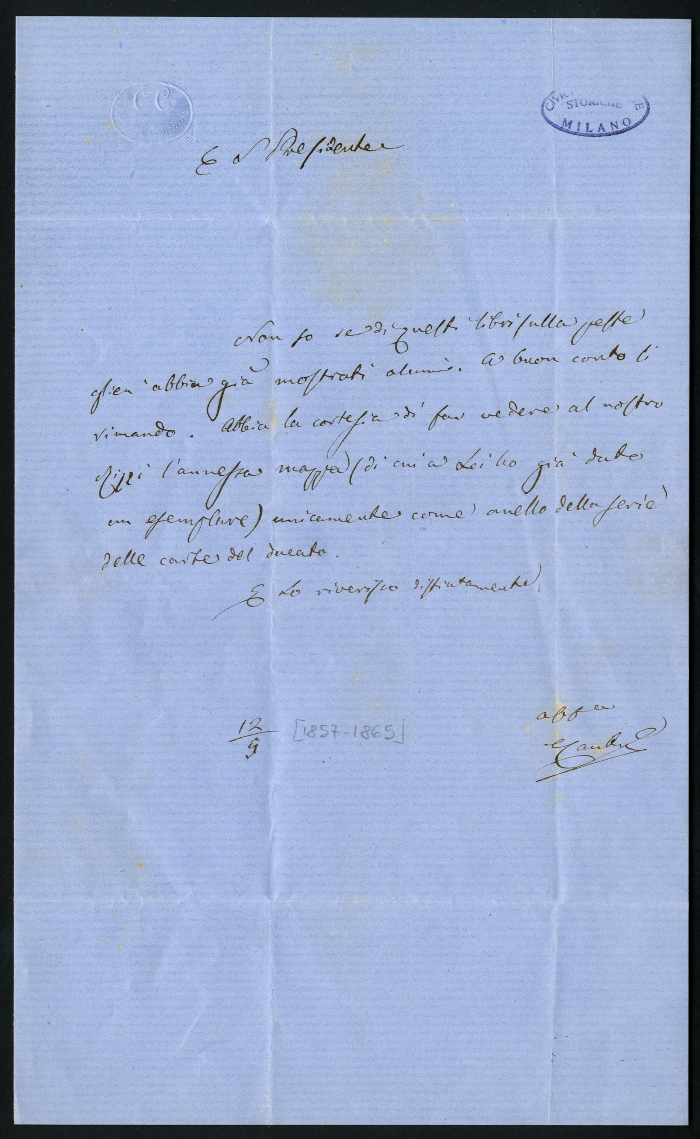 CC
CIVIC
STORICHE
MILANO
E S Presidente
Non so se di questi libri sulla peste
glien' abbia già mostrati alcuni. A buon conto li
rimando. Abbia la cortesia di far vedere al nostro
l'annessa mappa (di cui a Lei ho già dato
un esemplare) unicamente come anello della serie
delle carte del ducato.
E Lo riverisco distintamente
12/9 [1857-1865]